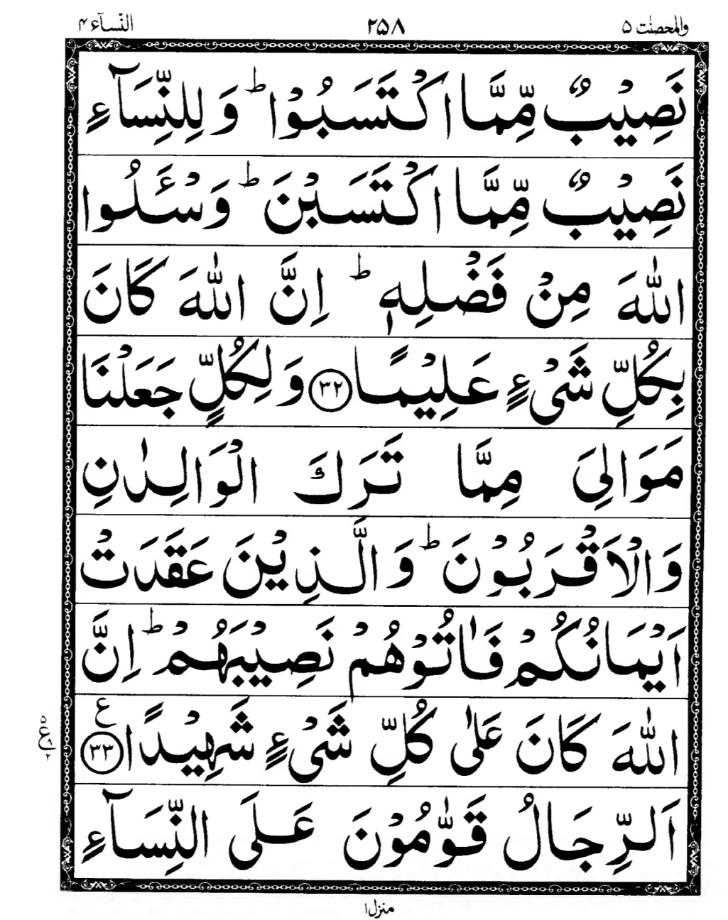 والمحصنٰت ۵ ۲۵۸ النّسآء ۴
نَصِیْبٌ مِّمَّا اکْتَسَبُوْا ؕ وَ لِلنِّسَآءِ
نَصِیْبٌ مِّمَّا اکْتَسَبْنَ ؕ وَسْـَٔلُوا
اللّٰهَ مِنْ فَضْلِهٖ ؕ اِنَّ اللّٰهَ کَانَ
بِکُلِّ شَیْءٍ عَلِیْمًا ﴿۳۲﴾ وَ لِکُلٍّ جَعَلْنَا
مَوَالِیَ مِمَّا تَرَكَ الْوَالِدٰنِ
وَالْاَقْرَبُوْنَ ؕ وَ الَّذِیْنَ عَقَدَتْ
اَیْمَانُکُمْ فَاٰتُوْهُمْ نَصِیْبَهُمْ ؕ اِنَّ
اللّٰهَ کَانَ عَلٰی کُلِّ شَیْءٍ شَهِیْدًا ﴿۳۳﴾ ع
اَلرِّجَالُ قَوّٰمُوْنَ عَلَی النِّسَآءِ
منزل۱